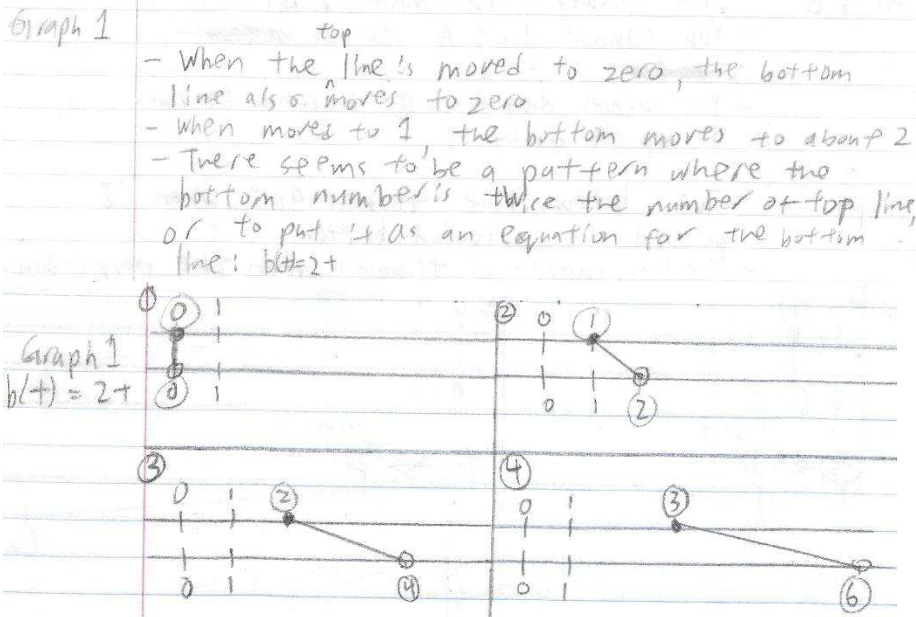 Graph 1
- When the top line is moved to zero, the bottom
line also moves to zero
- when moved to 1, the bottom moves to about 2
- There seems to be a pattern where the
bottom number is twice the number of top line,
or to put it as an equation for the bottom
line: b(t)=2t
Graph 1
b(t) = 2t
① 0 1
0 1
② 0 1
0 1 2
③ 0 1 2
0 1 4
④ 0 1 3
0 1 6